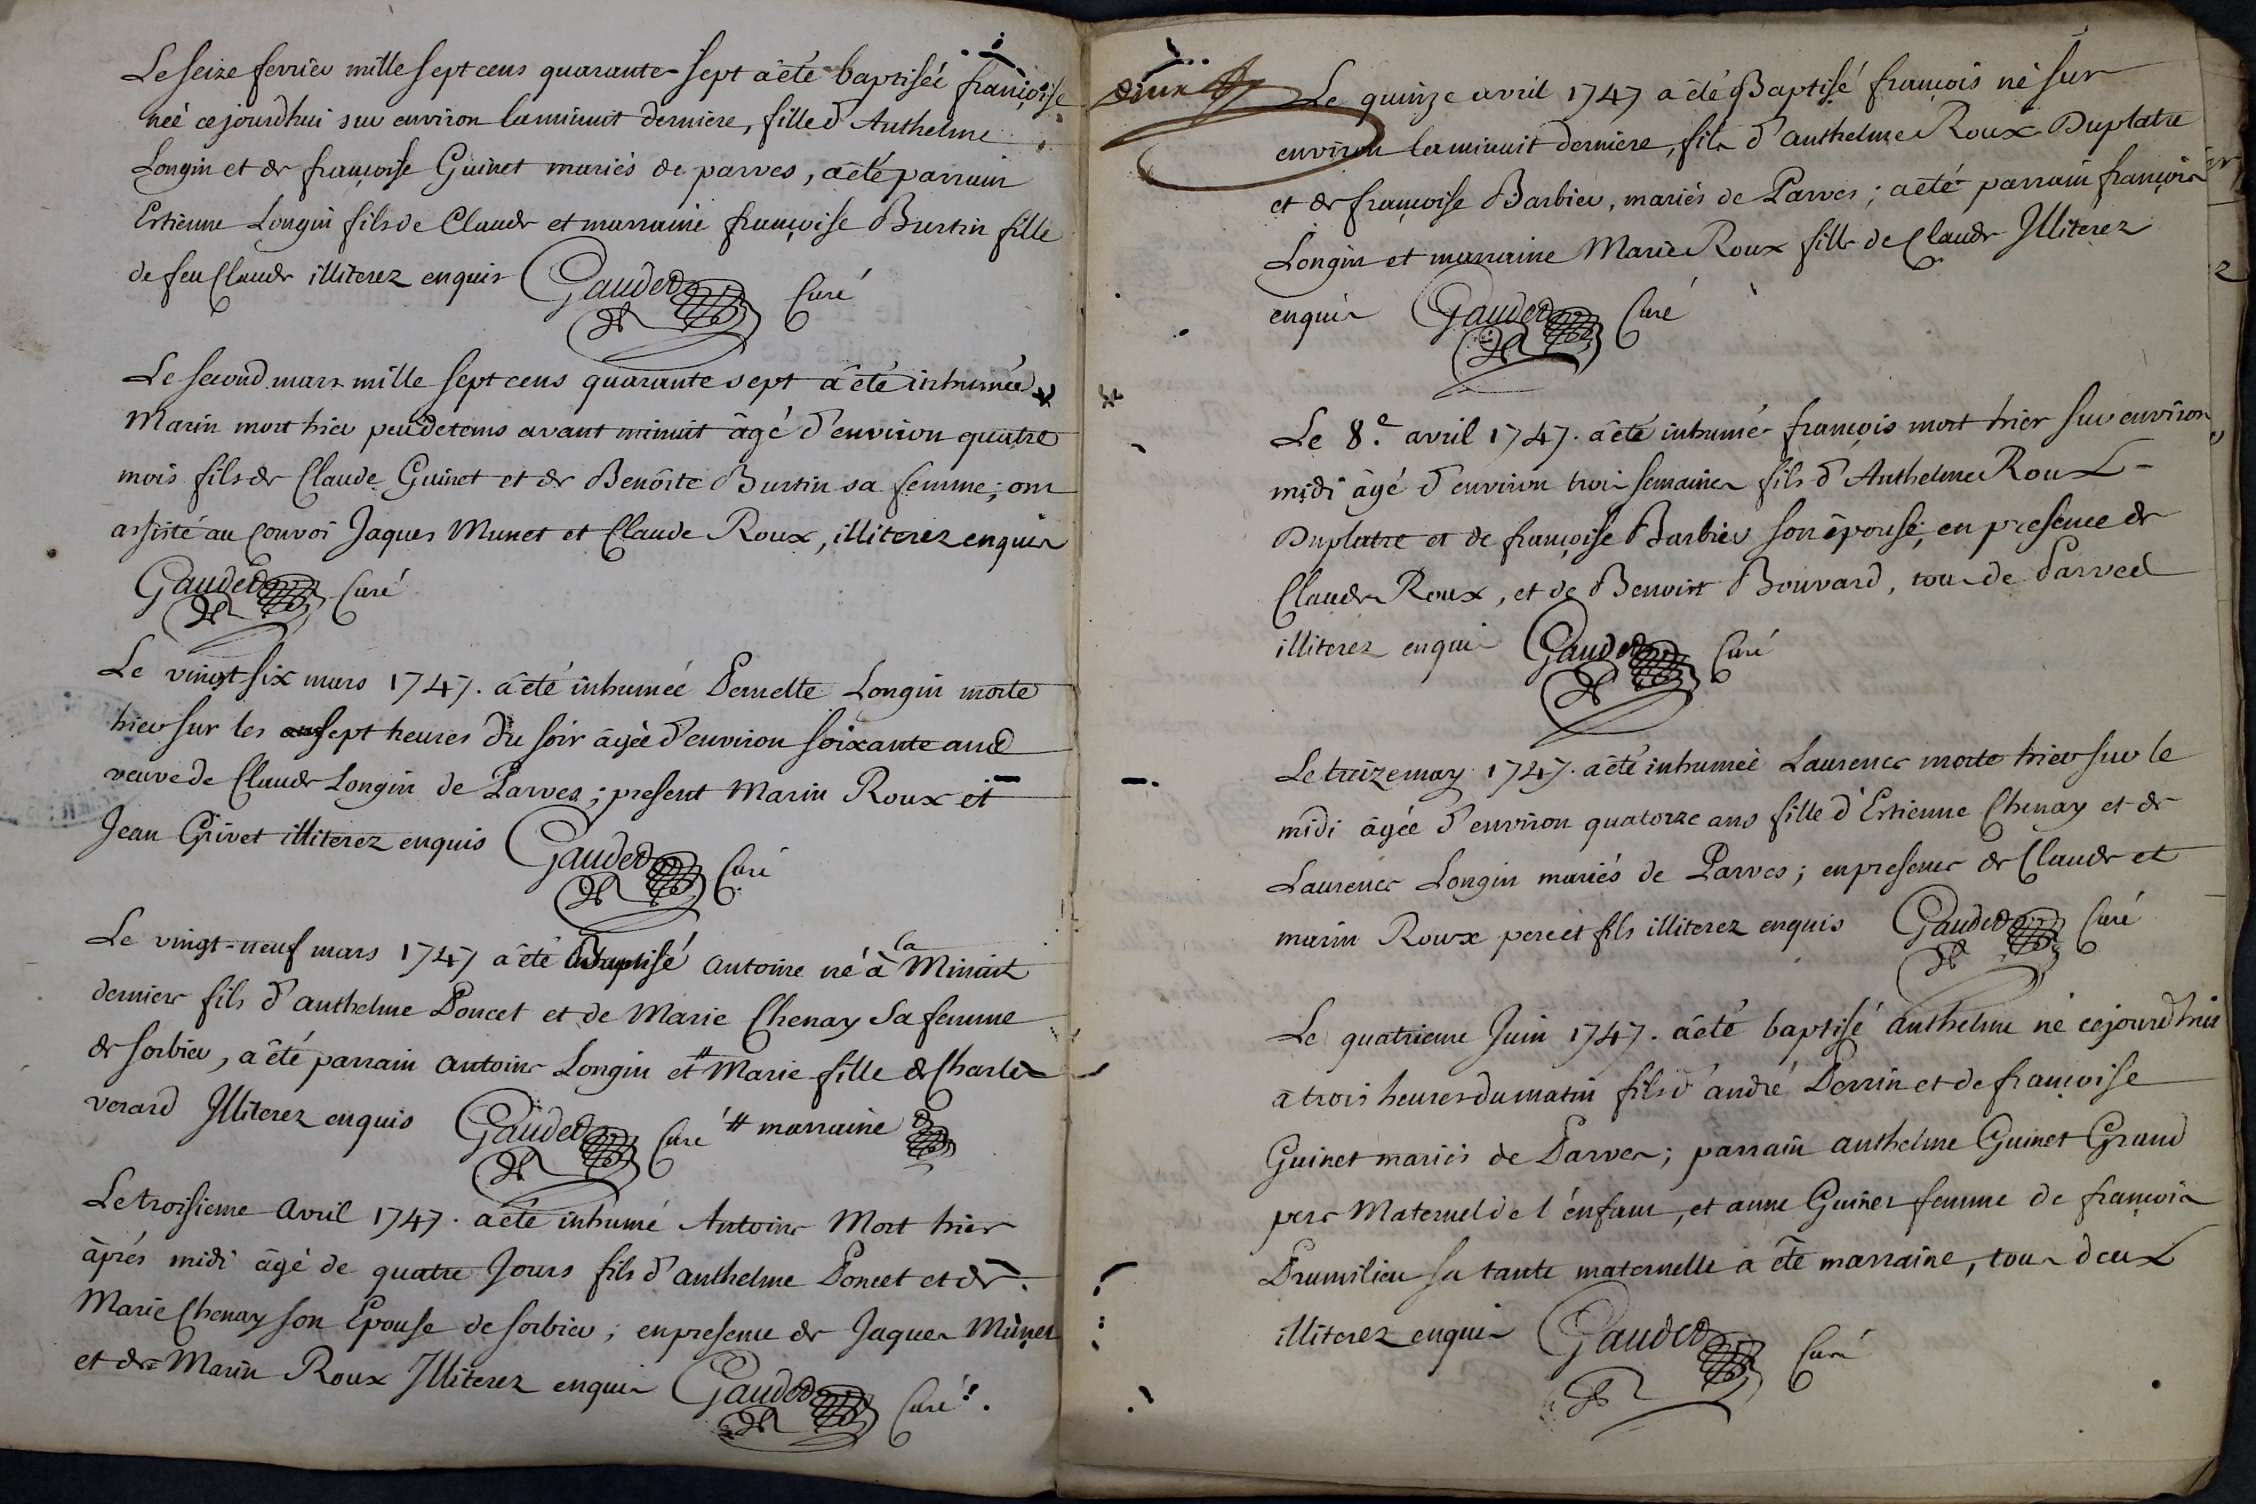 Le seize fevrier mille sept cens quarante-sept a êté baptisée françoise
née cejourdhui sur environ la minuit derniere, fille d'Anthelme
Longin et de françoise Guinet mariés de parves, a êté parrain
Estienne Longin fils de Claude et marraine françoise Burtin fille
de feu Claude illiterez enquis Gaudet Curé
Le second mars mille sept cens quarante sept a êté inhumée
Marin mort hier peu de tems avant minuit âgé d'environ quatre
mois fils de Claude Guinet et de Benoîte Burtin sa femme; ont
assisté au convoi Jaques Munet et Claude Roux, illiterez enquis
Gaudet Curé
Le vingt-six mars 1747. a êté inhumée Pernette Longin morte
hier sur les sept heures du soir âgée d'environ soixante ans
veuve de Claude Longin de Parves; present Marin Roux et
Jean Grivet illiterez enquis Gaudet Curé
Le vingt-neuf mars 1747 a êté baptisé Antoine né à la Minuit
derniere fils d'anthelme Poncet et de Marie Chenay sa femme
de sorbier, a êté parrain Antoine Longin et # Marie fille de Charles
verard Illiterez enquis Gaudet Curé # marraine
Le troisieme Avril 1747. a êté inhumé Antoine Mort hier
après midi âgé de quatre Jours fils d'anthelme Poncet et de
Marie Chenay son Epouse de sorbier; en presence de Jaques Munet
et de Marin Roux Illiterez enquis Gaudet Curé.
deux
Le quinze avril 1747 a êté Baptisé françois né sur
environ la minuit derniere, fils d'anthelme Roux Duplatre
et de françoise Barbier, mariés de Parves; a êté parrain françois
Longin et marraine Marie Roux fille de Claude Illiterez
enquis Gaudet Curé
Le 8.e avril 1747. a êté inhumé françois mort hier sur environ
midi âgé d'environ trois semaines fils d'Anthelme Roux
Duplatre et de françoise Barbier son êpouse; en presence de
Claude Roux, et de Benoist Bouvard, tous de Parves
illiterez enquis Gaudet Curé
Le treize may 1747. a êté inhumée Laurence morte hier sur le
midi âgée d'environ quatorze ans fille d'Estienne Chenay et de
Laurence Longin mariés de Parves; en presence de Claude et
marin Roux pere et fils illiterez enquis Gaudet Curé
Le quatrieme Juin 1747. a êté baptisé anthelme né cejourdhui
a trois heures du matin fils d'andré Perrin et de françoise
Guinet mariés de Parves; parrain anthelme Guinet Grand
pere Maternel de l'enfant, et anne Guinet femme de françois
Drumilieu sa tante maternelle a êté marraine, tous deux
illiterez enquis Gaudet Curé